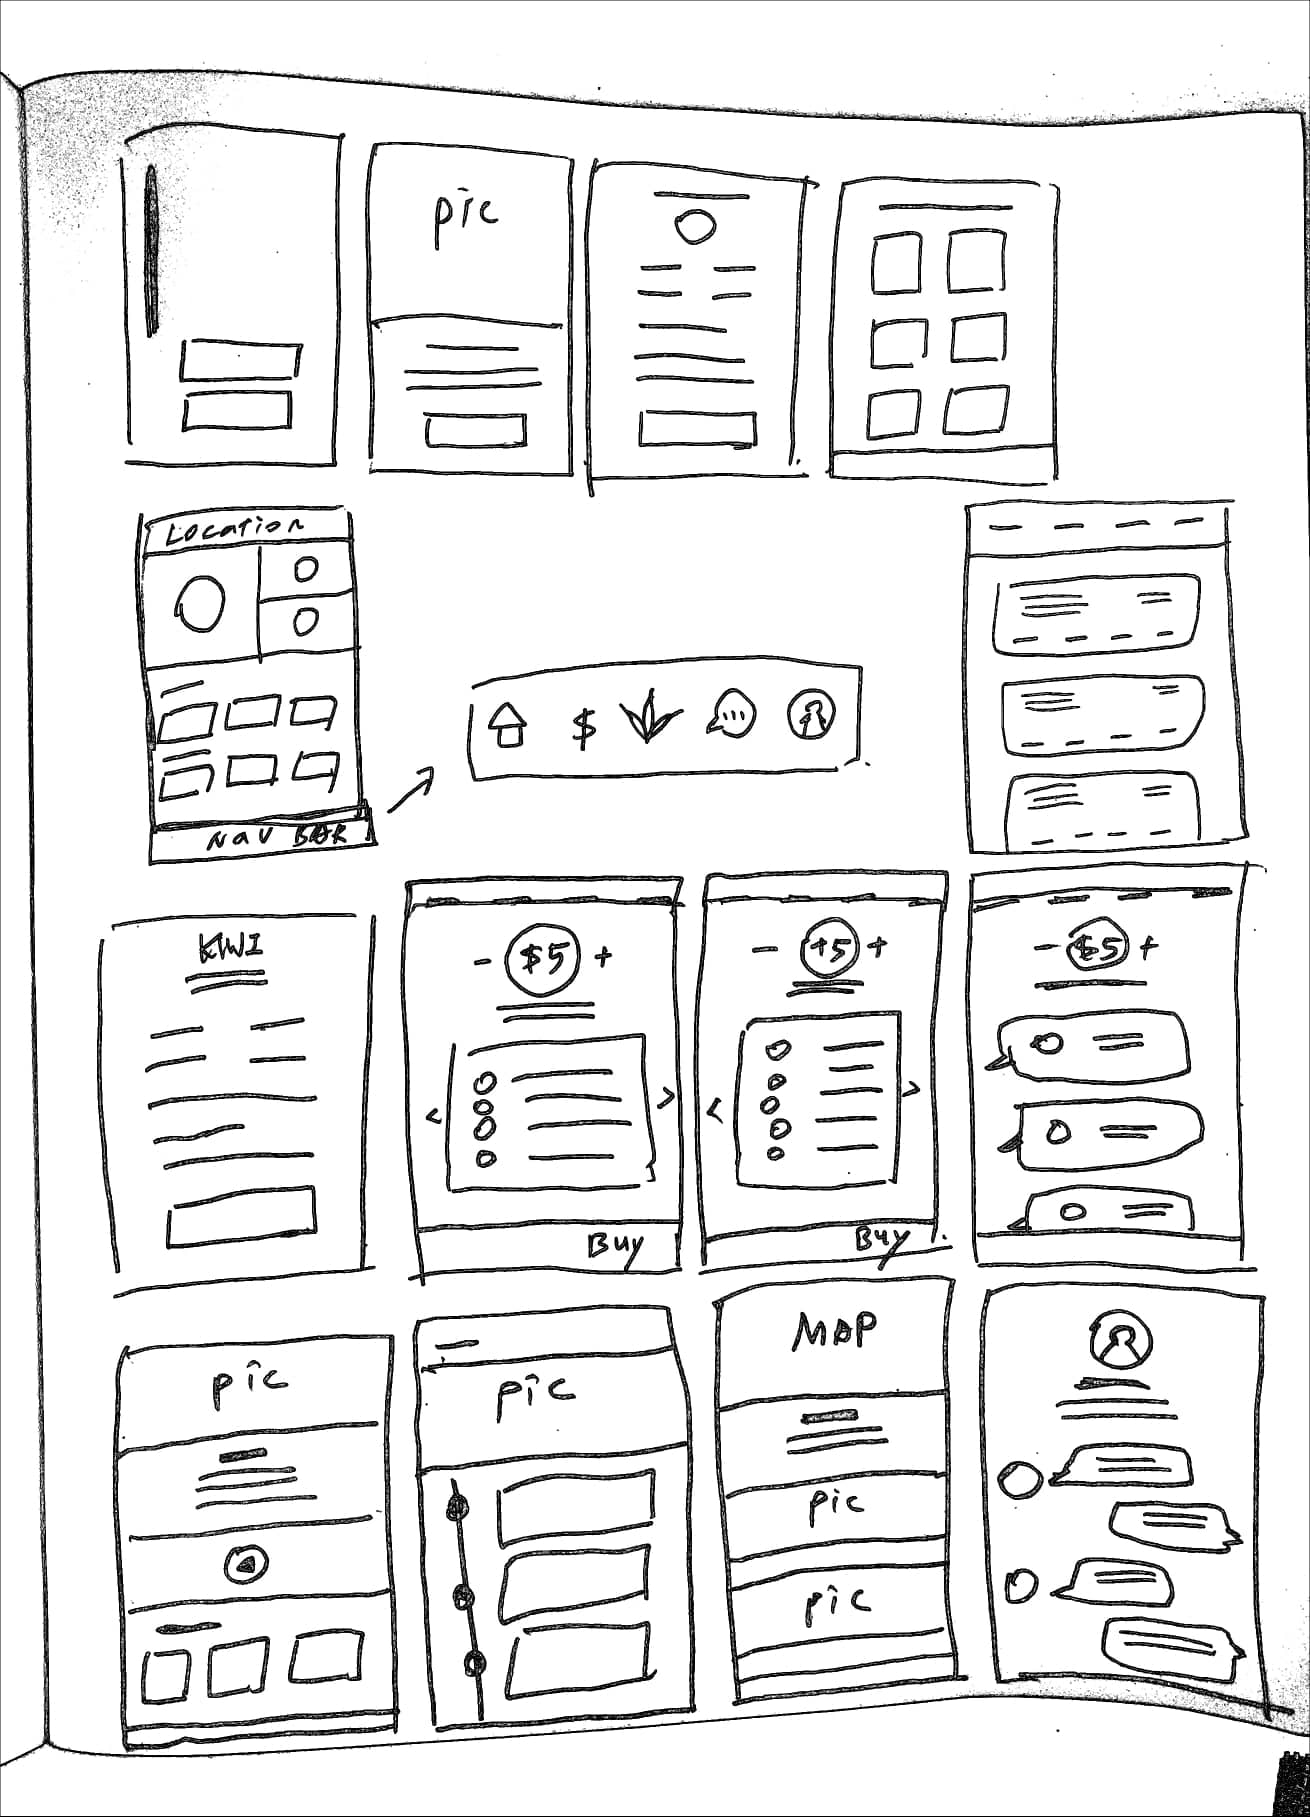 pic
Location
$
Nav BAR
KIWI
- $5 +
- +5 +
- $5 +
< >
< >
Buy
Buy
pic
pic
MAP
pic
pic